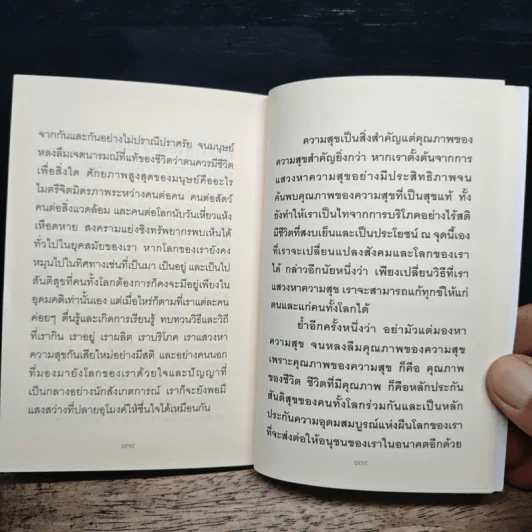 จากกันและกันอย่างไม่ปราณีปราศรัย จนมนุษย์
หลงลืมเจตนารมณ์ที่แท้ของชีวิตว่าตนควรมีชีวิต
เพื่อสิ่งใด ศักยภาพสูงสุดของมนุษย์คืออะไร
ไมตรีจิตมิตรภาพระหว่างคนต่อคน คนต่อสัตว์
คนต่อสิ่งแวดล้อม และคนต่อโลกนับวันเหี่ยวแห้ง
เหือดหาย สงครามแย่งชิงทรัพยากรพบเห็นได้
ทั่วไปในยุคสมัยของเรา หากโลกของเรายังคง
หมุนไปในทิศทางเช่นที่เป็นมา เป็นอยู่ และเป็นไป
สันติสุขที่คนทั้งโลกต้องการก็คงจะมีอยู่เพียงใน
อุดมคติเท่านั้นเอง แต่เมื่อไหร่ก็ตามที่เราแต่ละคน
ค่อยๆ ตื่นรู้และเกิดการเรียนรู้ ทบทวนวิธีและวิถี
ที่เรากิน เราอยู่ เราผลิต เราบริโภค เราแสวงหา
ความสุขกันเสียใหม่อย่างมีสติ และอย่างคนนอก
ที่มองมายังโลกของเราด้วยใจและปัญญาที่
เป็นกลางอย่างนักสังเกตการณ์ เราก็จะยังพอมี
แสงสว่างที่ปลายอุโมงค์ให้ชื่นใจได้เหมือนกัน
ความสุขเป็นสิ่งสำคัญแต่คุณภาพของ
ความสุขสำคัญยิ่งกว่า หากเราตั้งต้นจากการ
แสวงหาความสุขอย่างมีประสิทธิภาพจน
ค้นพบคุณภาพของความสุขที่เป็นสุขแท้ ทั้ง
ยังทำให้เราเป็นไทจากการบริโภคอย่างไร้สติ
มีชีวิตที่สงบเย็นและเป็นประโยชน์ ณ จุดนี้เอง
ที่เราจะเปลี่ยนแปลงสังคมและโลกของเรา
ได้ กล่าวอีกนัยหนึ่งว่า เพียงเปลี่ยนวิธีที่เรา
แสวงหาความสุข เราจะสามารถแก้ทุกข์ให้แก่
ตนและแก่คนทั้งโลกได้
ย้ำอีกครั้งหนึ่งว่า อย่ามัวแต่มองหา
ความสุข จนหลงลืมคุณภาพของความสุข
เพราะคุณภาพของความสุข ก็คือ คุณภาพ
ของชีวิต ชีวิตที่มีคุณภาพ ก็คือหลักประกัน
สันติสุขของคนทั้งโลกร่วมกันและเป็นหลัก
ประกันความอุดมสมบูรณ์แห่งผืนโลกของเรา
ที่จะส่งต่อให้อนุชนของเราในอนาคตอีกด้วย